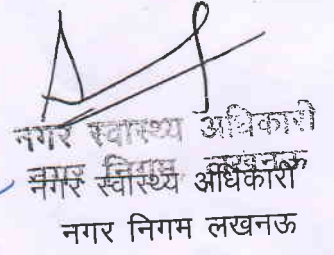 नगर स्वास्थ्य अधिकारी
नगर निगम लखनऊ
नगर स्वास्थ्य अधिकारी
नगर निगम लखनऊ